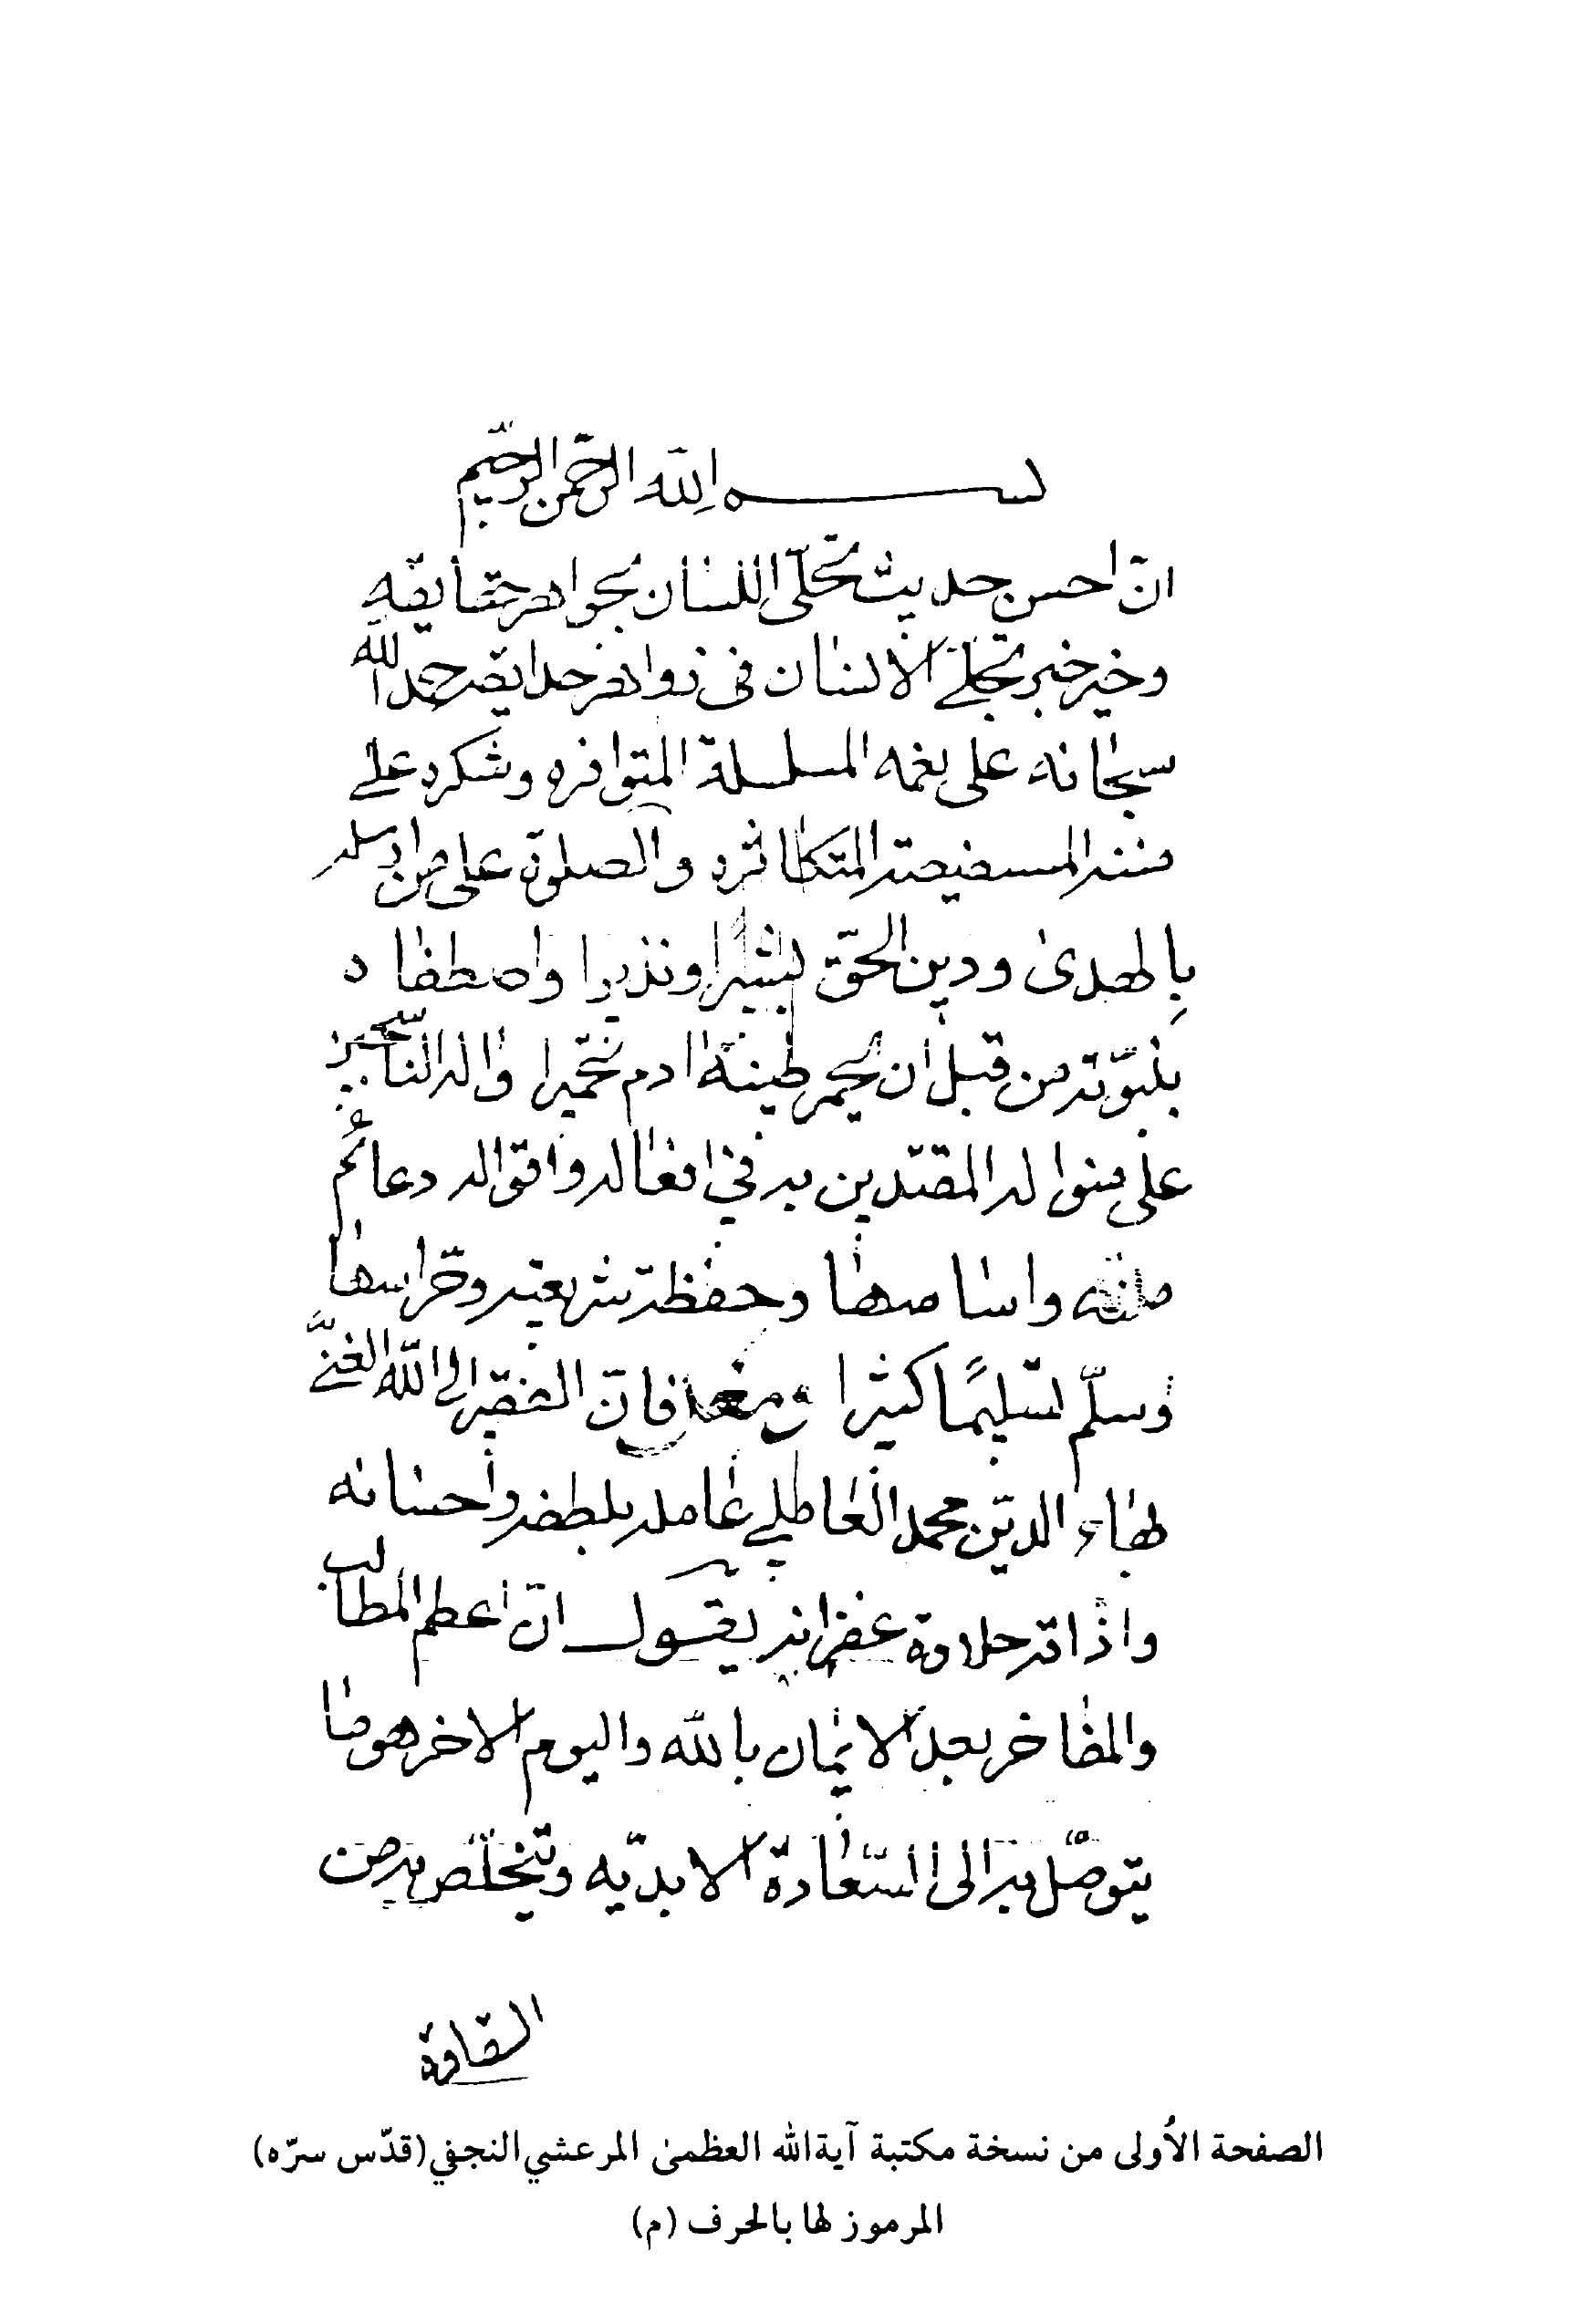 بسم الله الرحمن الرحيم
انّ احسن حديث تحلّى اللسان بجواهر حقايقه
وخير خبر تجلى الانسان فى زواهر حدايقه حمد الله
سبحانه على نعمه المسلسلة المتواتره وشكره على
مننه المستفيضه المتكاثره والصلوة على من ارسله
بالهدى ودين الحقّ بشيرا ونذيرا واصطفاه
بنبوّته من قبل ان يخمر طينة ادم تخميرا واله الناسجين
على منواله المقتدين به في افعاله واقواله دعائم
ملته واساسها وحفظة شريعته وحرّاسها
وسلّم تسليمًا كثيرا وبعد فانّ الفقير الى الله الغنّي
بهاء الدين محمد العاملي عامله بلطفه واحسانه
واذاقه حلاوة غفرانه يقول انّ اعظم المطالب
والمفاخر بعد الايمان بالله واليوم الاخر هو ما
يتوصّل به الى السّعادة الابديّه ويتخلّص به من
الشقاوة
الصفحة الأولى من نسخة مكتبة آية الله العظمىٰ المرعشي النجفي (قدّس سرّه)
المرموز لها بالحرف (م)